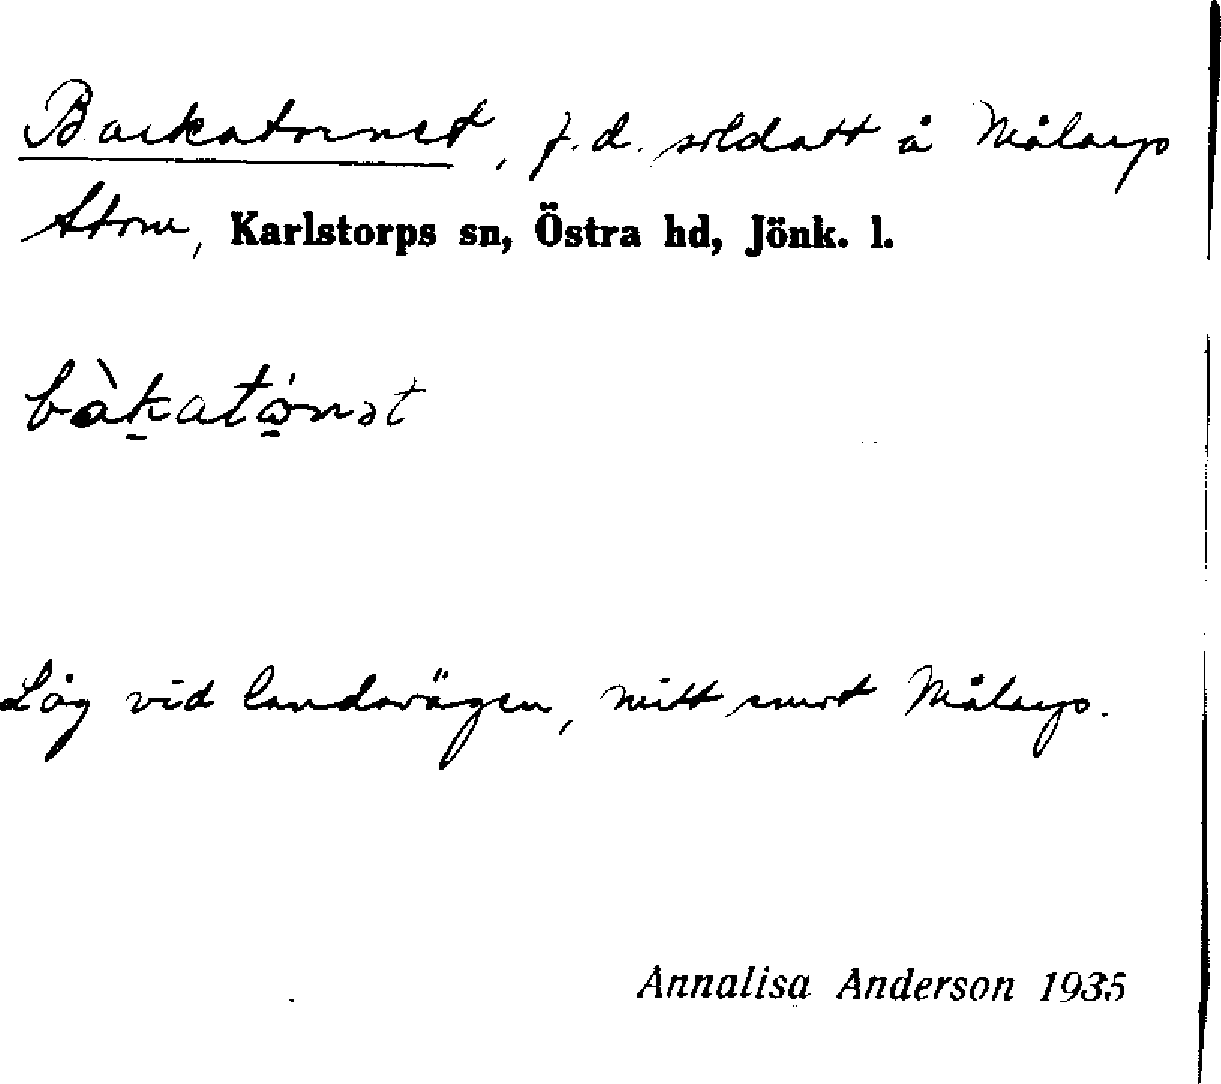 Backatornet, f.d. soldatt å Målarp
Stom, Karlstorps sn, Östra hd, Jönk. l.
bàkatónət
Låg vid landsvägen, mitt emot Målarp.
Annalisa Anderson 1935